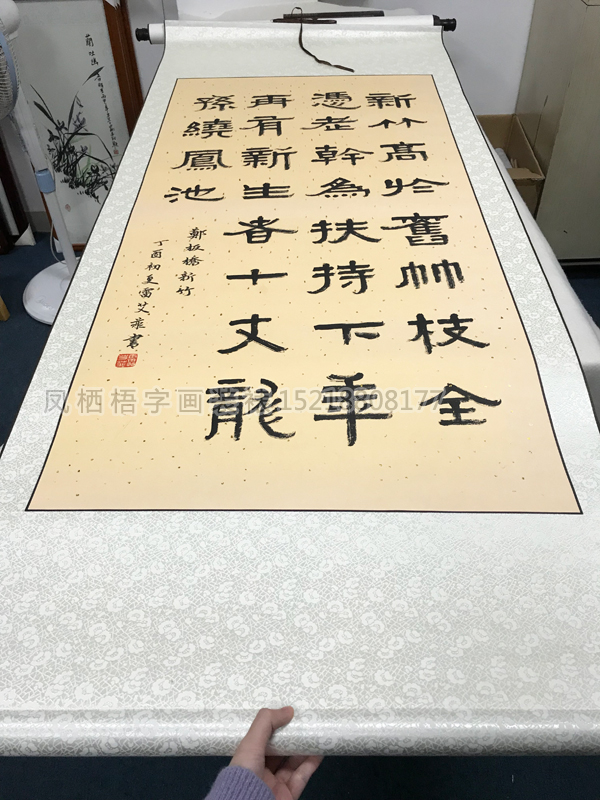 新竹高於舊竹枝全
憑老幹為扶持下年
再有新生者十丈龍
孫繞鳳池
鄭板橋新竹
丁酉初夏雷艾書
凤栖梧字画